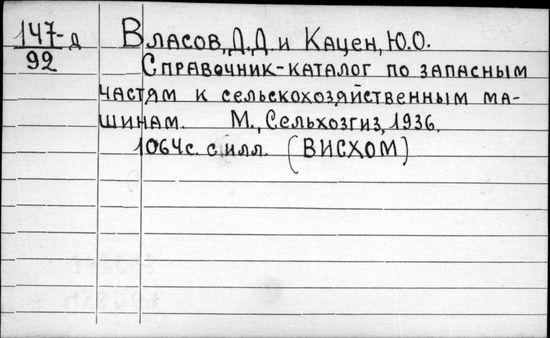 147-д
92
Власов, Д.Д. и Кацен, Ю.О.
Справочник-каталог по запасным
частям к сельскохозяйственным ма-
шинам. М., Сельхозгиз, 1936.
1064с. с илл. (ВИСХОМ)